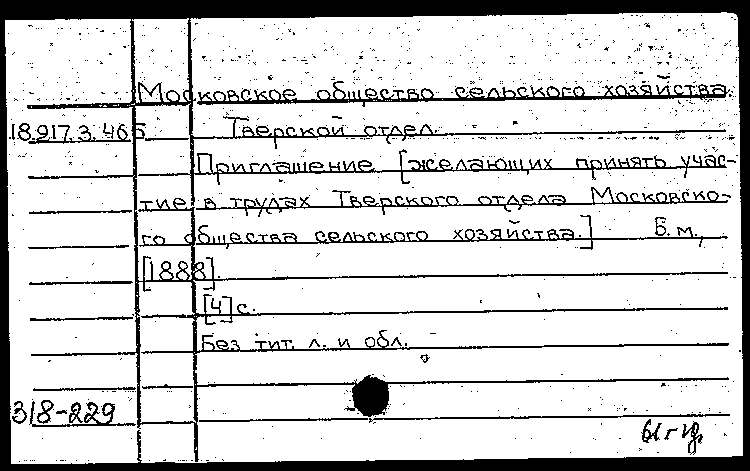 Московское общество сельского хозяйства.
18.917.3.465 Тверской отдел.
Приглашение [желающих принять учас-
тие в трудах Тверского отдела Московско-
го общества сельского хозяйства.] Б.м.,
[1888].
[4] с.
Без тит. л. и обл.
318-229